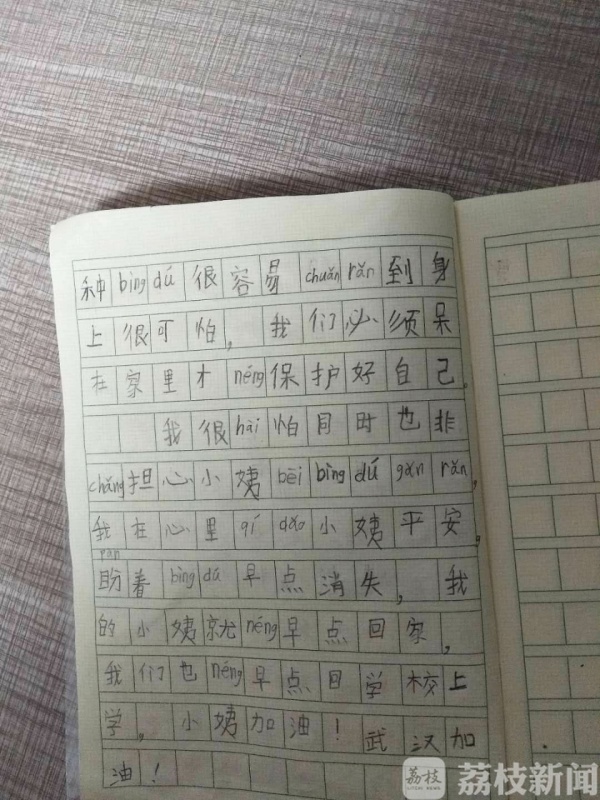 种bìng dú很容易chuǎn rǎn到身
上很可怕，我们必须呆
在家里才néng保护好自己。
我很hài怕同时也非
cháng担心小姨bèi bìng dú gǎn rǎn，
我在心里qí dǎo小姨平安，
pàn
盼着bìng dú早点消失，我
的小姨就néng早点回家，
我们也néng早点回学校上
学，小姨加油！武汉加
油！
荔枝
LITCHI NEWS
荔枝新闻